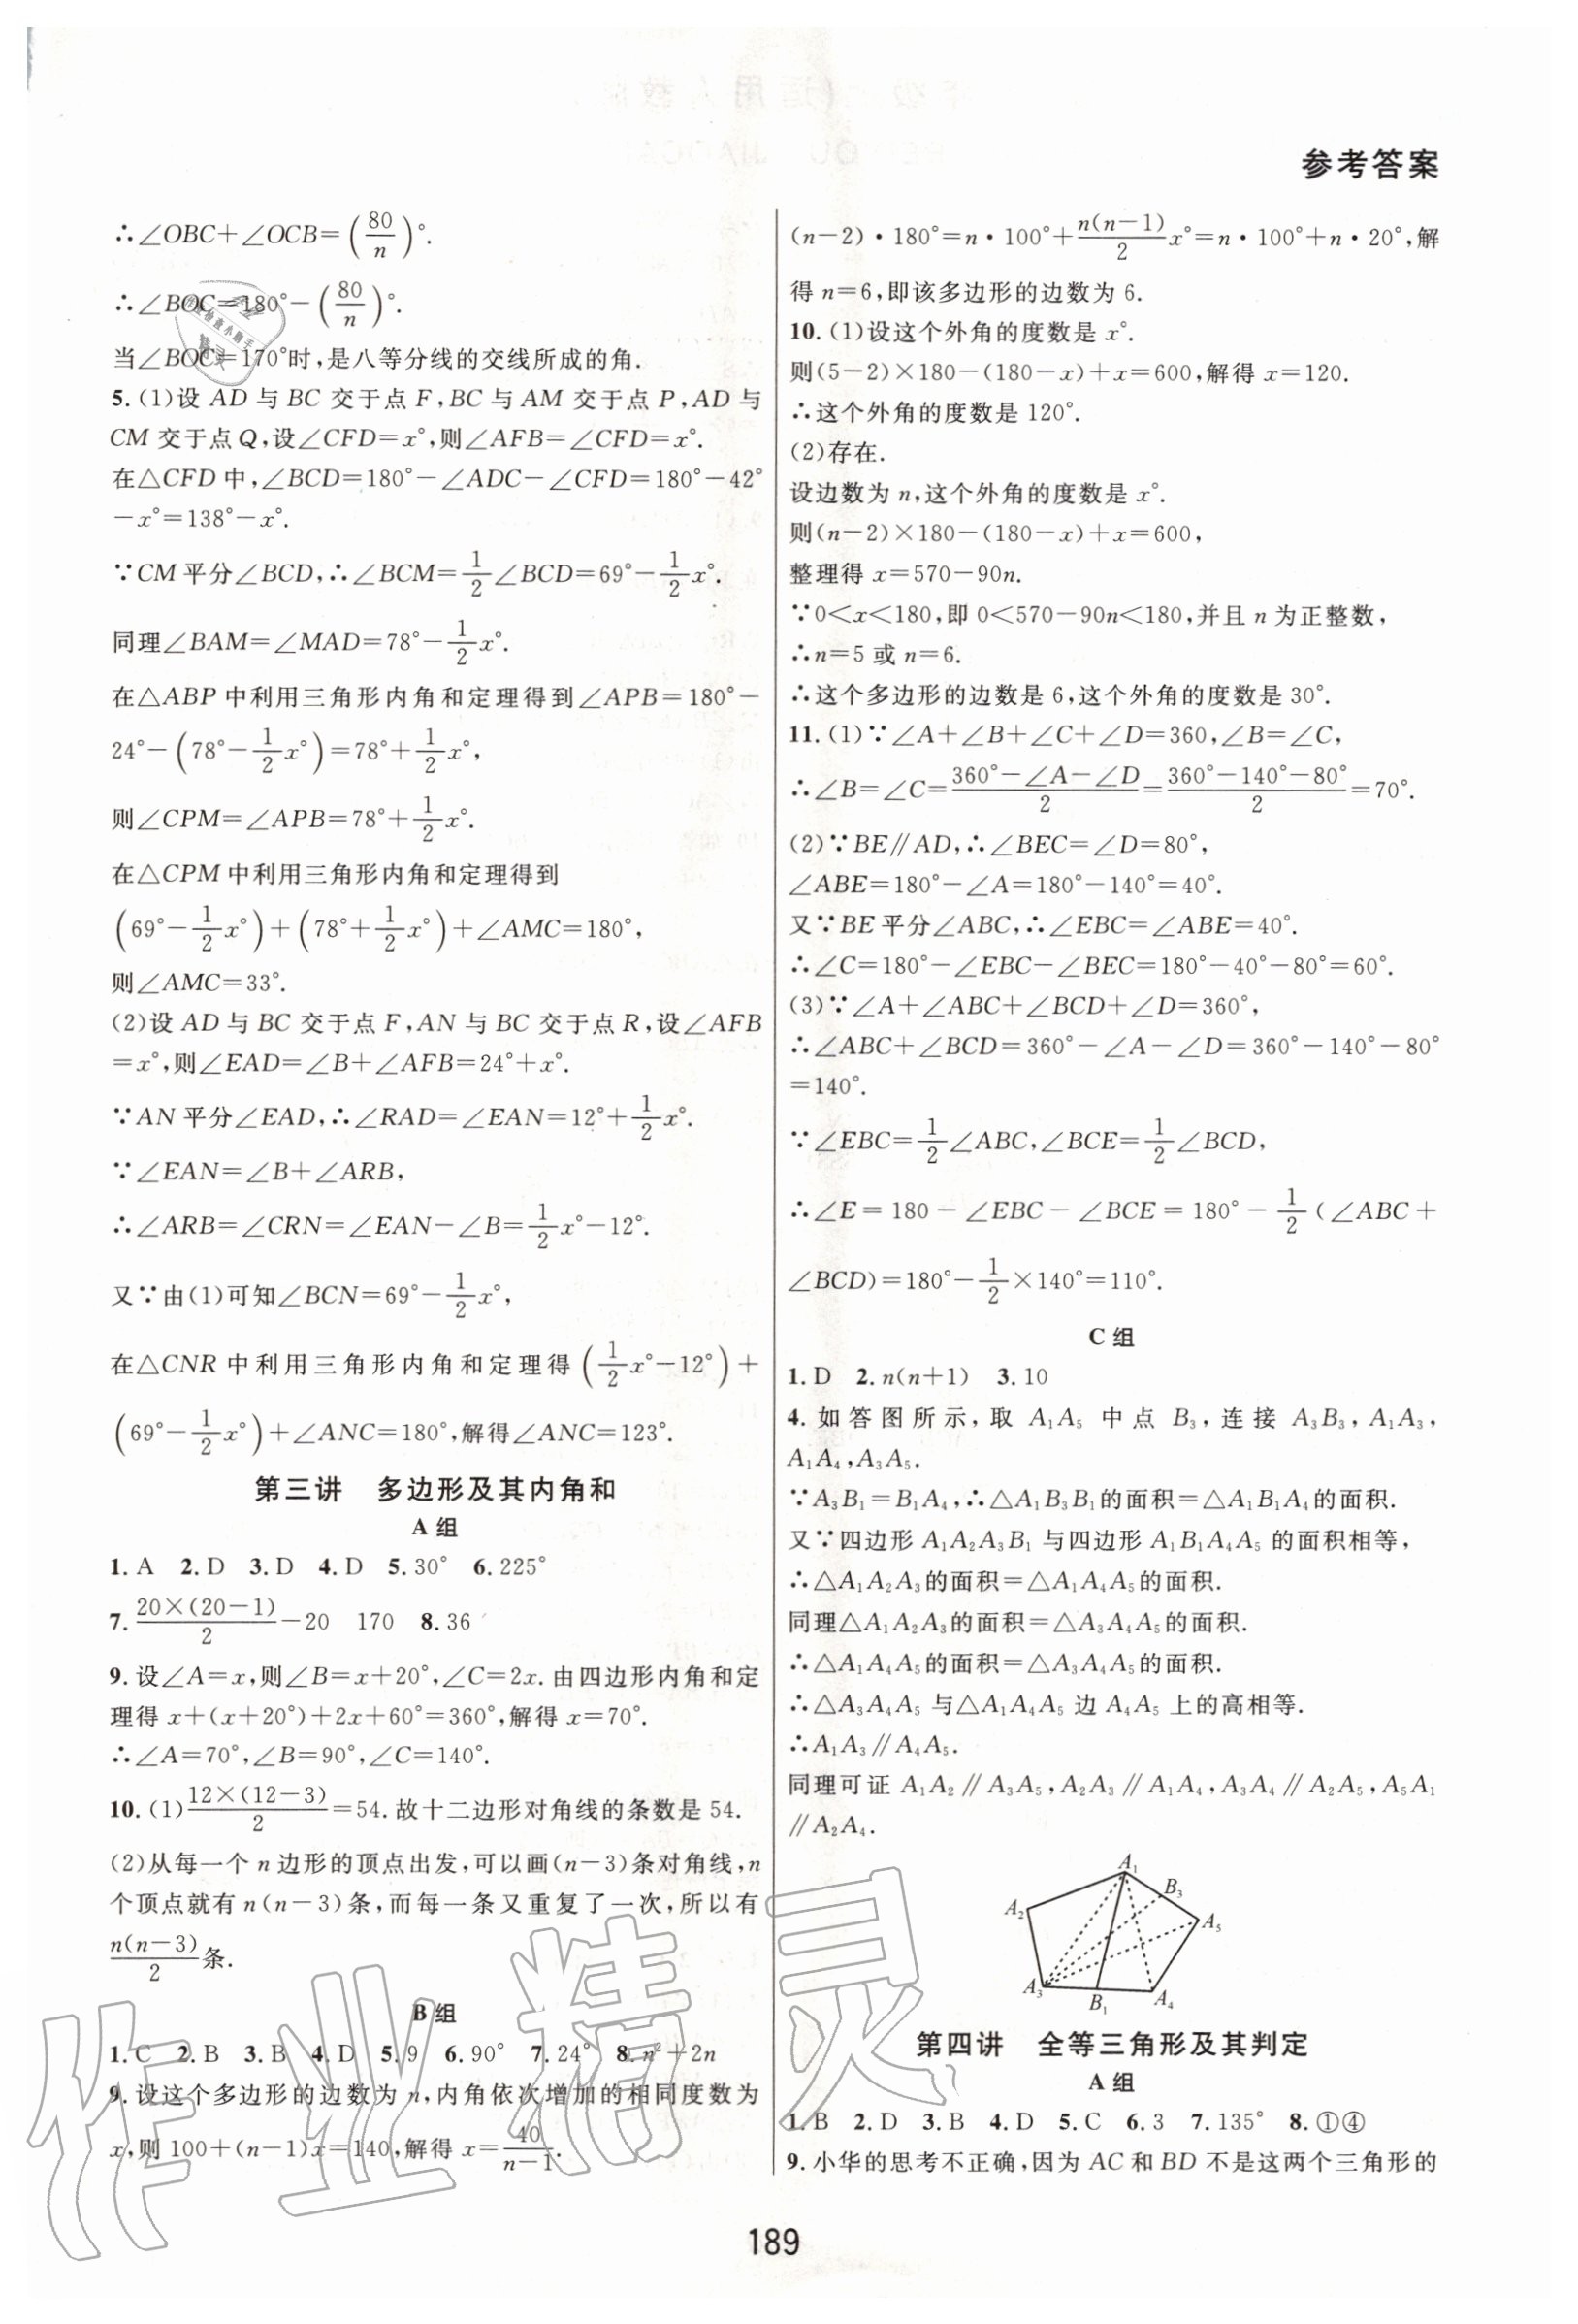 参考答案
∴∠OBC+∠OCB=(80/n)°.
∴∠BOC=180°-(80/n)°.
当∠BOC=170°时,是八等分线的交线所成的角.
5.(1)设 AD 与 BC 交于点 F,BC 与 AM 交于点 P,AD 与
CM 交于点 Q,设∠CFD=x°,则∠AFB=∠CFD=x°.
在△CFD 中,∠BCD=180°-∠ADC-∠CFD=180°-42°
-x°=138°-x°.
∵CM 平分∠BCD,∴∠BCM=1/2∠BCD=69°-1/2x°.
同理∠BAM=∠MAD=78°-1/2x°.
在△ABP 中利用三角形内角和定理得到∠APB=180°-
24°-(78°-1/2x°)=78°+1/2x°,
则∠CPM=∠APB=78°+1/2x°.
在△CPM 中利用三角形内角和定理得到
(69°-1/2x°)+(78°+1/2x°)+∠AMC=180°,
则∠AMC=33°.
(2)设 AD 与 BC 交于点 F,AN 与 BC 交于点 R,设∠AFB
=x°,则∠EAD=∠B+∠AFB=24°+x°.
∵AN 平分∠EAD,∴∠RAD=∠EAN=12°+1/2x°.
∵∠EAN=∠B+∠ARB,
∴∠ARB=∠CRN=∠EAN-∠B=1/2x°-12°.
又∵由(1)可知∠BCN=69°-1/2x°,
在△CNR 中利用三角形内角和定理得(1/2x°-12°)+
(69°-1/2x°)+∠ANC=180°,解得∠ANC=123°.
第三讲 多边形及其内角和
A 组
1.A 2.D 3.D 4.D 5.30° 6.225°
7.20×(20-1)/2-20 170 8.36
9.设∠A=x,则∠B=x+20°,∠C=2x.由四边形内角和定
理得 x+(x+20°)+2x+60°=360°,解得 x=70°.
∴∠A=70°,∠B=90°,∠C=140°.
10.(1)12×(12-3)/2=54.故十二边形对角线的条数是 54.
(2)从每一个 n 边形的顶点出发,可以画(n-3)条对角线,n
个顶点就有 n(n-3)条,而每一条又重复了一次,所以有
n(n-3)/2条.
B 组
1.C 2.B 3.B 4.D 5.9 6.90° 7.24° 8.n²+2n
9.设这个多边形的边数为 n,内角依次增加的相同度数为
x,则 100+(n-1)x=140,解得 x=40/(n-1).
(n-2)·180°=n·100°+n(n-1)/2x°=n·100°+n·20°,解
得 n=6,即该多边形的边数为 6.
10.(1)设这个外角的度数是 x°.
则(5-2)×180-(180-x)+x=600,解得 x=120.
∴这个外角的度数是 120°.
(2)存在.
设边数为 n,这个外角的度数是 x°.
则(n-2)×180-(180-x)+x=600,
整理得 x=570-90n.
∵0<x<180,即 0<570-90n<180,并且 n 为正整数,
∴n=5 或 n=6.
∴这个多边形的边数是 6,这个外角的度数是 30°.
11.(1)∵∠A+∠B+∠C+∠D=360,∠B=∠C,
∴∠B=∠C=(360°-∠A-∠D)/2=(360°-140°-80°)/2=70°.
(2)∵BE∥AD,∴∠BEC=∠D=80°,
∠ABE=180°-∠A=180°-140°=40°.
又∵BE 平分∠ABC,∴∠EBC=∠ABE=40°.
∴∠C=180°-∠EBC-∠BEC=180°-40°-80°=60°.
(3)∵∠A+∠ABC+∠BCD+∠D=360°,
∴∠ABC+∠BCD=360°-∠A-∠D=360°-140°-80°
=140°.
∵∠EBC=1/2∠ABC,∠BCE=1/2∠BCD,
∴∠E=180-∠EBC-∠BCE=180°-1/2(∠ABC+
∠BCD)=180°-1/2×140°=110°.
C 组
1.D 2.n(n+1) 3.10
4.如答图所示,取 A₁A₅ 中点 B₃,连接 A₃B₃,A₁A₃,
A₁A₄,A₃A₅.
∵A₃B₁=B₁A₄,∴△A₁B₃B₁的面积=△A₁B₁A₄的面积.
又∵四边形 A₁A₂A₃B₁ 与四边形 A₁B₁A₄A₅ 的面积相等,
∴△A₁A₂A₃的面积=△A₁A₄A₅的面积.
同理△A₁A₂A₃的面积=△A₃A₄A₅的面积.
∴△A₁A₄A₅的面积=△A₃A₄A₅的面积.
∴△A₃A₄A₅ 与△A₁A₄A₅ 边 A₄A₅ 上的高相等.
∴A₁A₃∥A₄A₅.
同理可证 A₁A₂∥A₃A₅,A₂A₃∥A₁A₄,A₃A₄∥A₂A₅,A₅A₁
∥A₂A₄.
A₁
B₃
A₂
A₅
A₃
B₁
A₄
第四讲 全等三角形及其判定
A 组
1.B 2.D 3.B 4.D 5.C 6.3 7.135° 8.①④
9.小华的思考不正确,因为 AC 和 BD 不是这两个三角形的
189
作业精灵